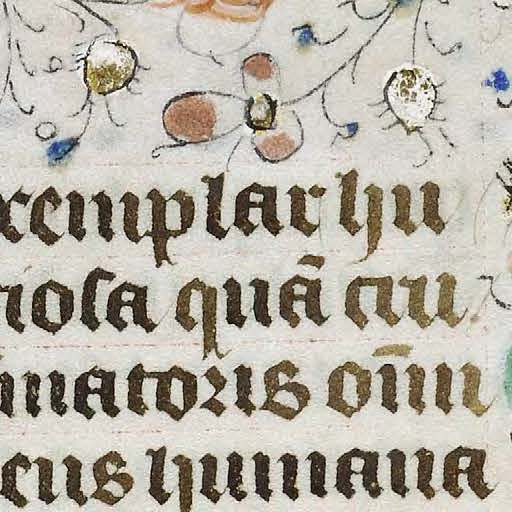 xemplar hu
iosa quã ciu
inatoris oīm
cus humana